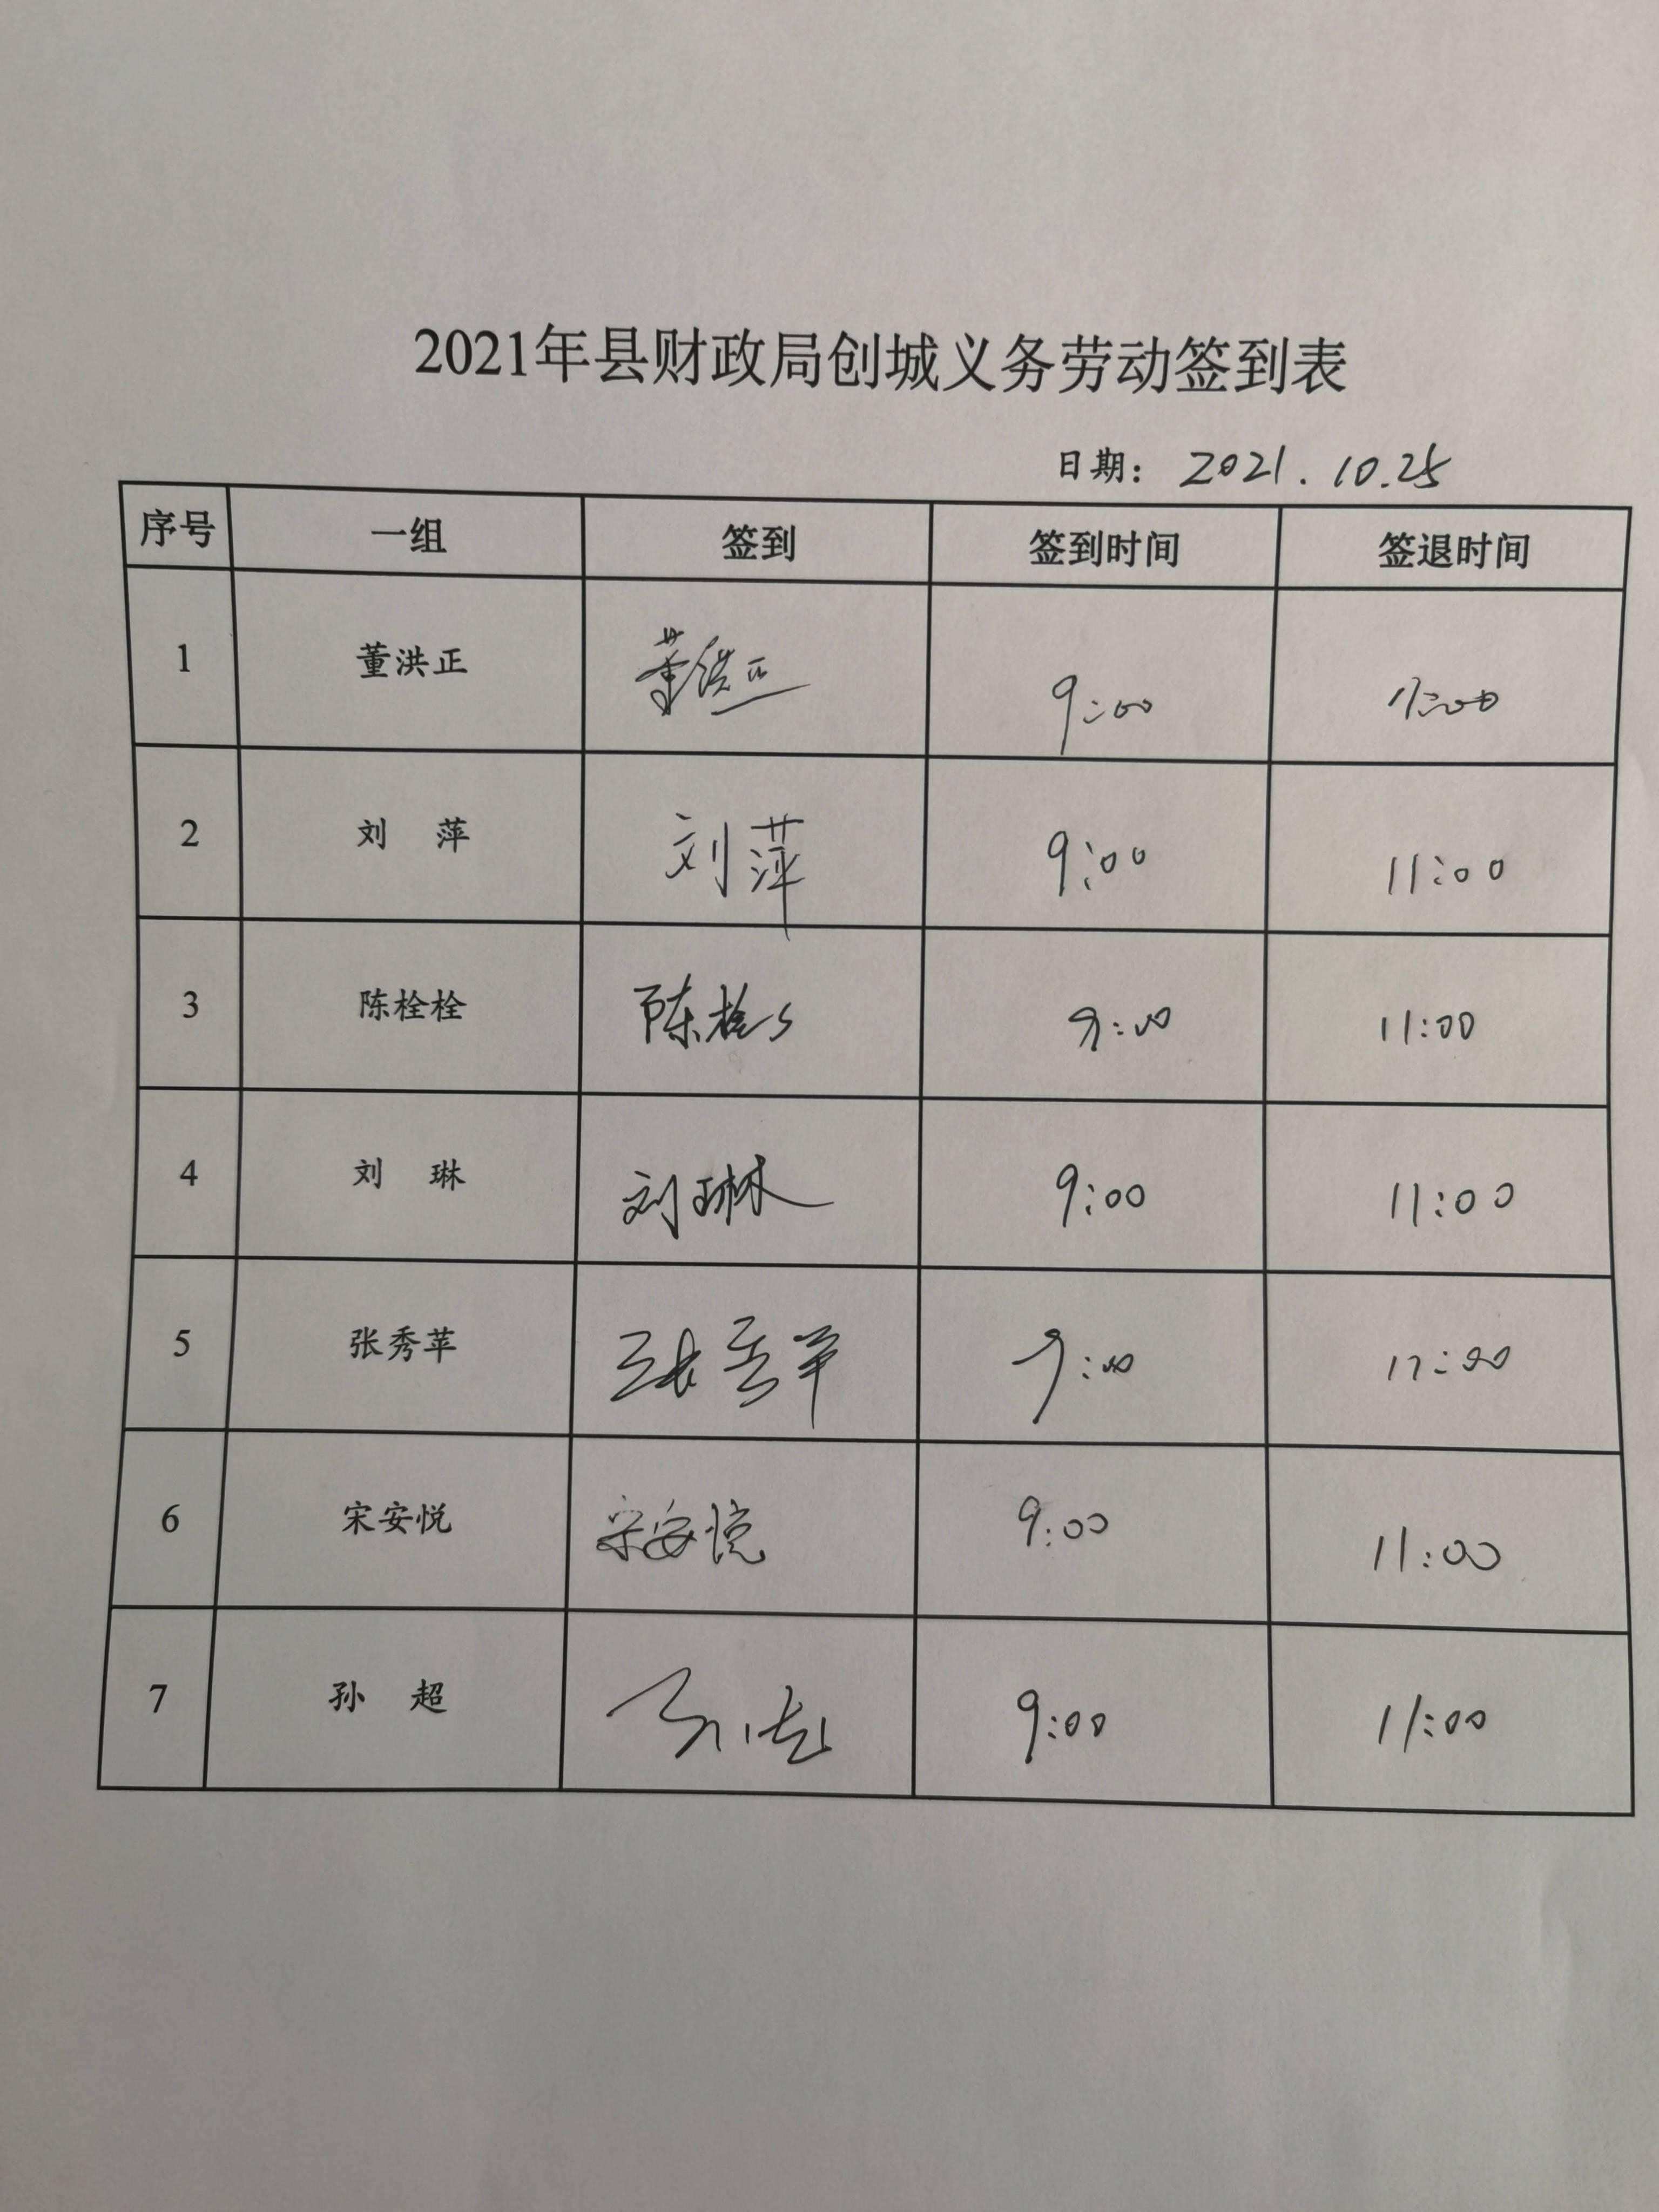 2021年县财政局创城义务劳动签到表
日期: 2021.10.25
序号 一组 签到 签到时间 签退时间
1 董洪正 董洪正 9:00 11:00
2 刘 萍 刘萍 9:00 11:00
3 陈栓栓 陈栓 9:00 11:00
4 刘 琳 刘琳 9:00 11:00
5 张秀苹 张秀苹 9:00 11:00
6 宋安悦 宋安悦 9:00 11:00
7 孙 超 孙超 9:00 11:00